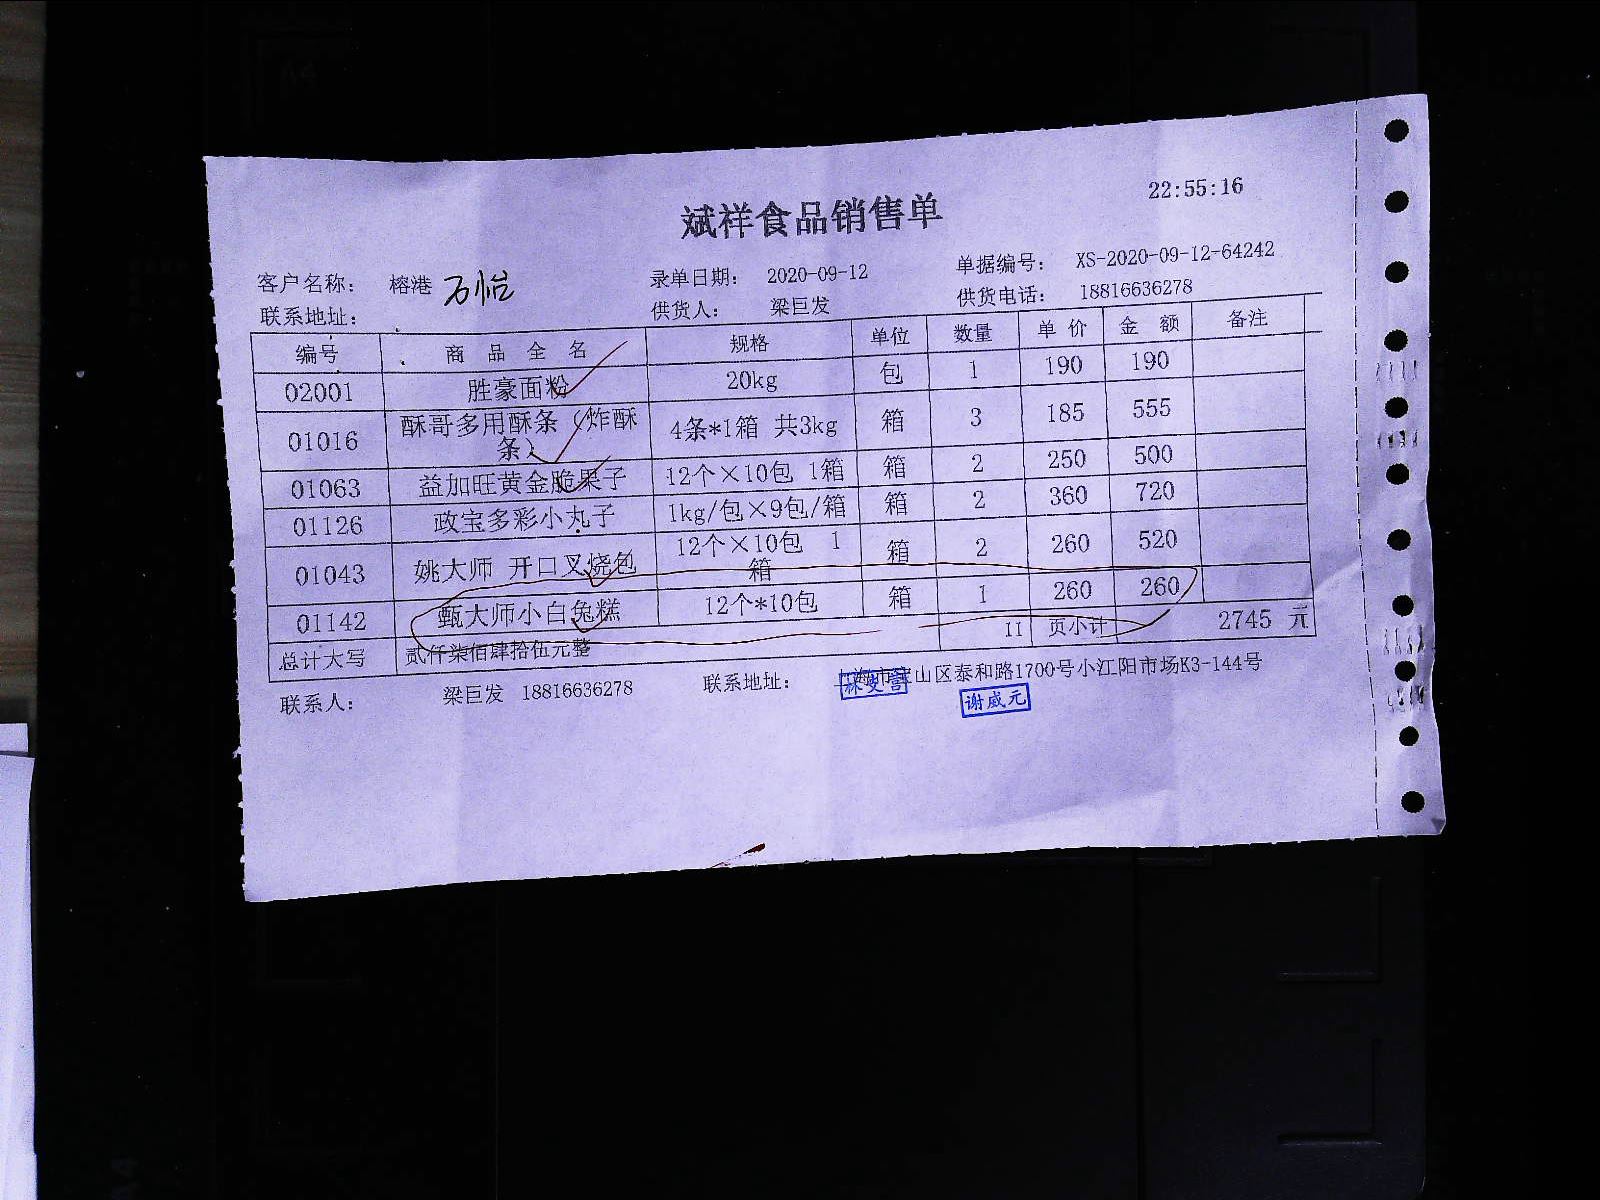 22:55:16
斌祥食品销售单
客户名称： 榕港 石怡 录单日期： 2020-09-12 单据编号： XS-2020-09-12-64242
联系地址： 供货人： 梁巨发 供货电话： 18816636278
编号 商 品 全 名 规格 单位 数量 单 价 金 额 备注
02001 胜豪面粉 20kg 包 1 190 190
01016 酥哥多用酥条（炸酥条） 4条*1箱 共3kg 箱 3 185 555
01063 益加旺黄金脆果子 12个×10包 1箱 箱 2 250 500
01126 政宝多彩小丸子 1kg/包×9包/箱 箱 2 360 720
01043 姚大师 开口叉烧包 12个×10包 1箱 箱 2 260 520
01142 甄大师小白兔糕 12个*10包 箱 1 260 260
总计大写 贰仟柒佰肆拾伍元整 11 页小计 2745 元
联系人： 梁巨发 18816636278 联系地址： 上海市宝山区泰和路1700号小江阳市场K3-144号
谢威元